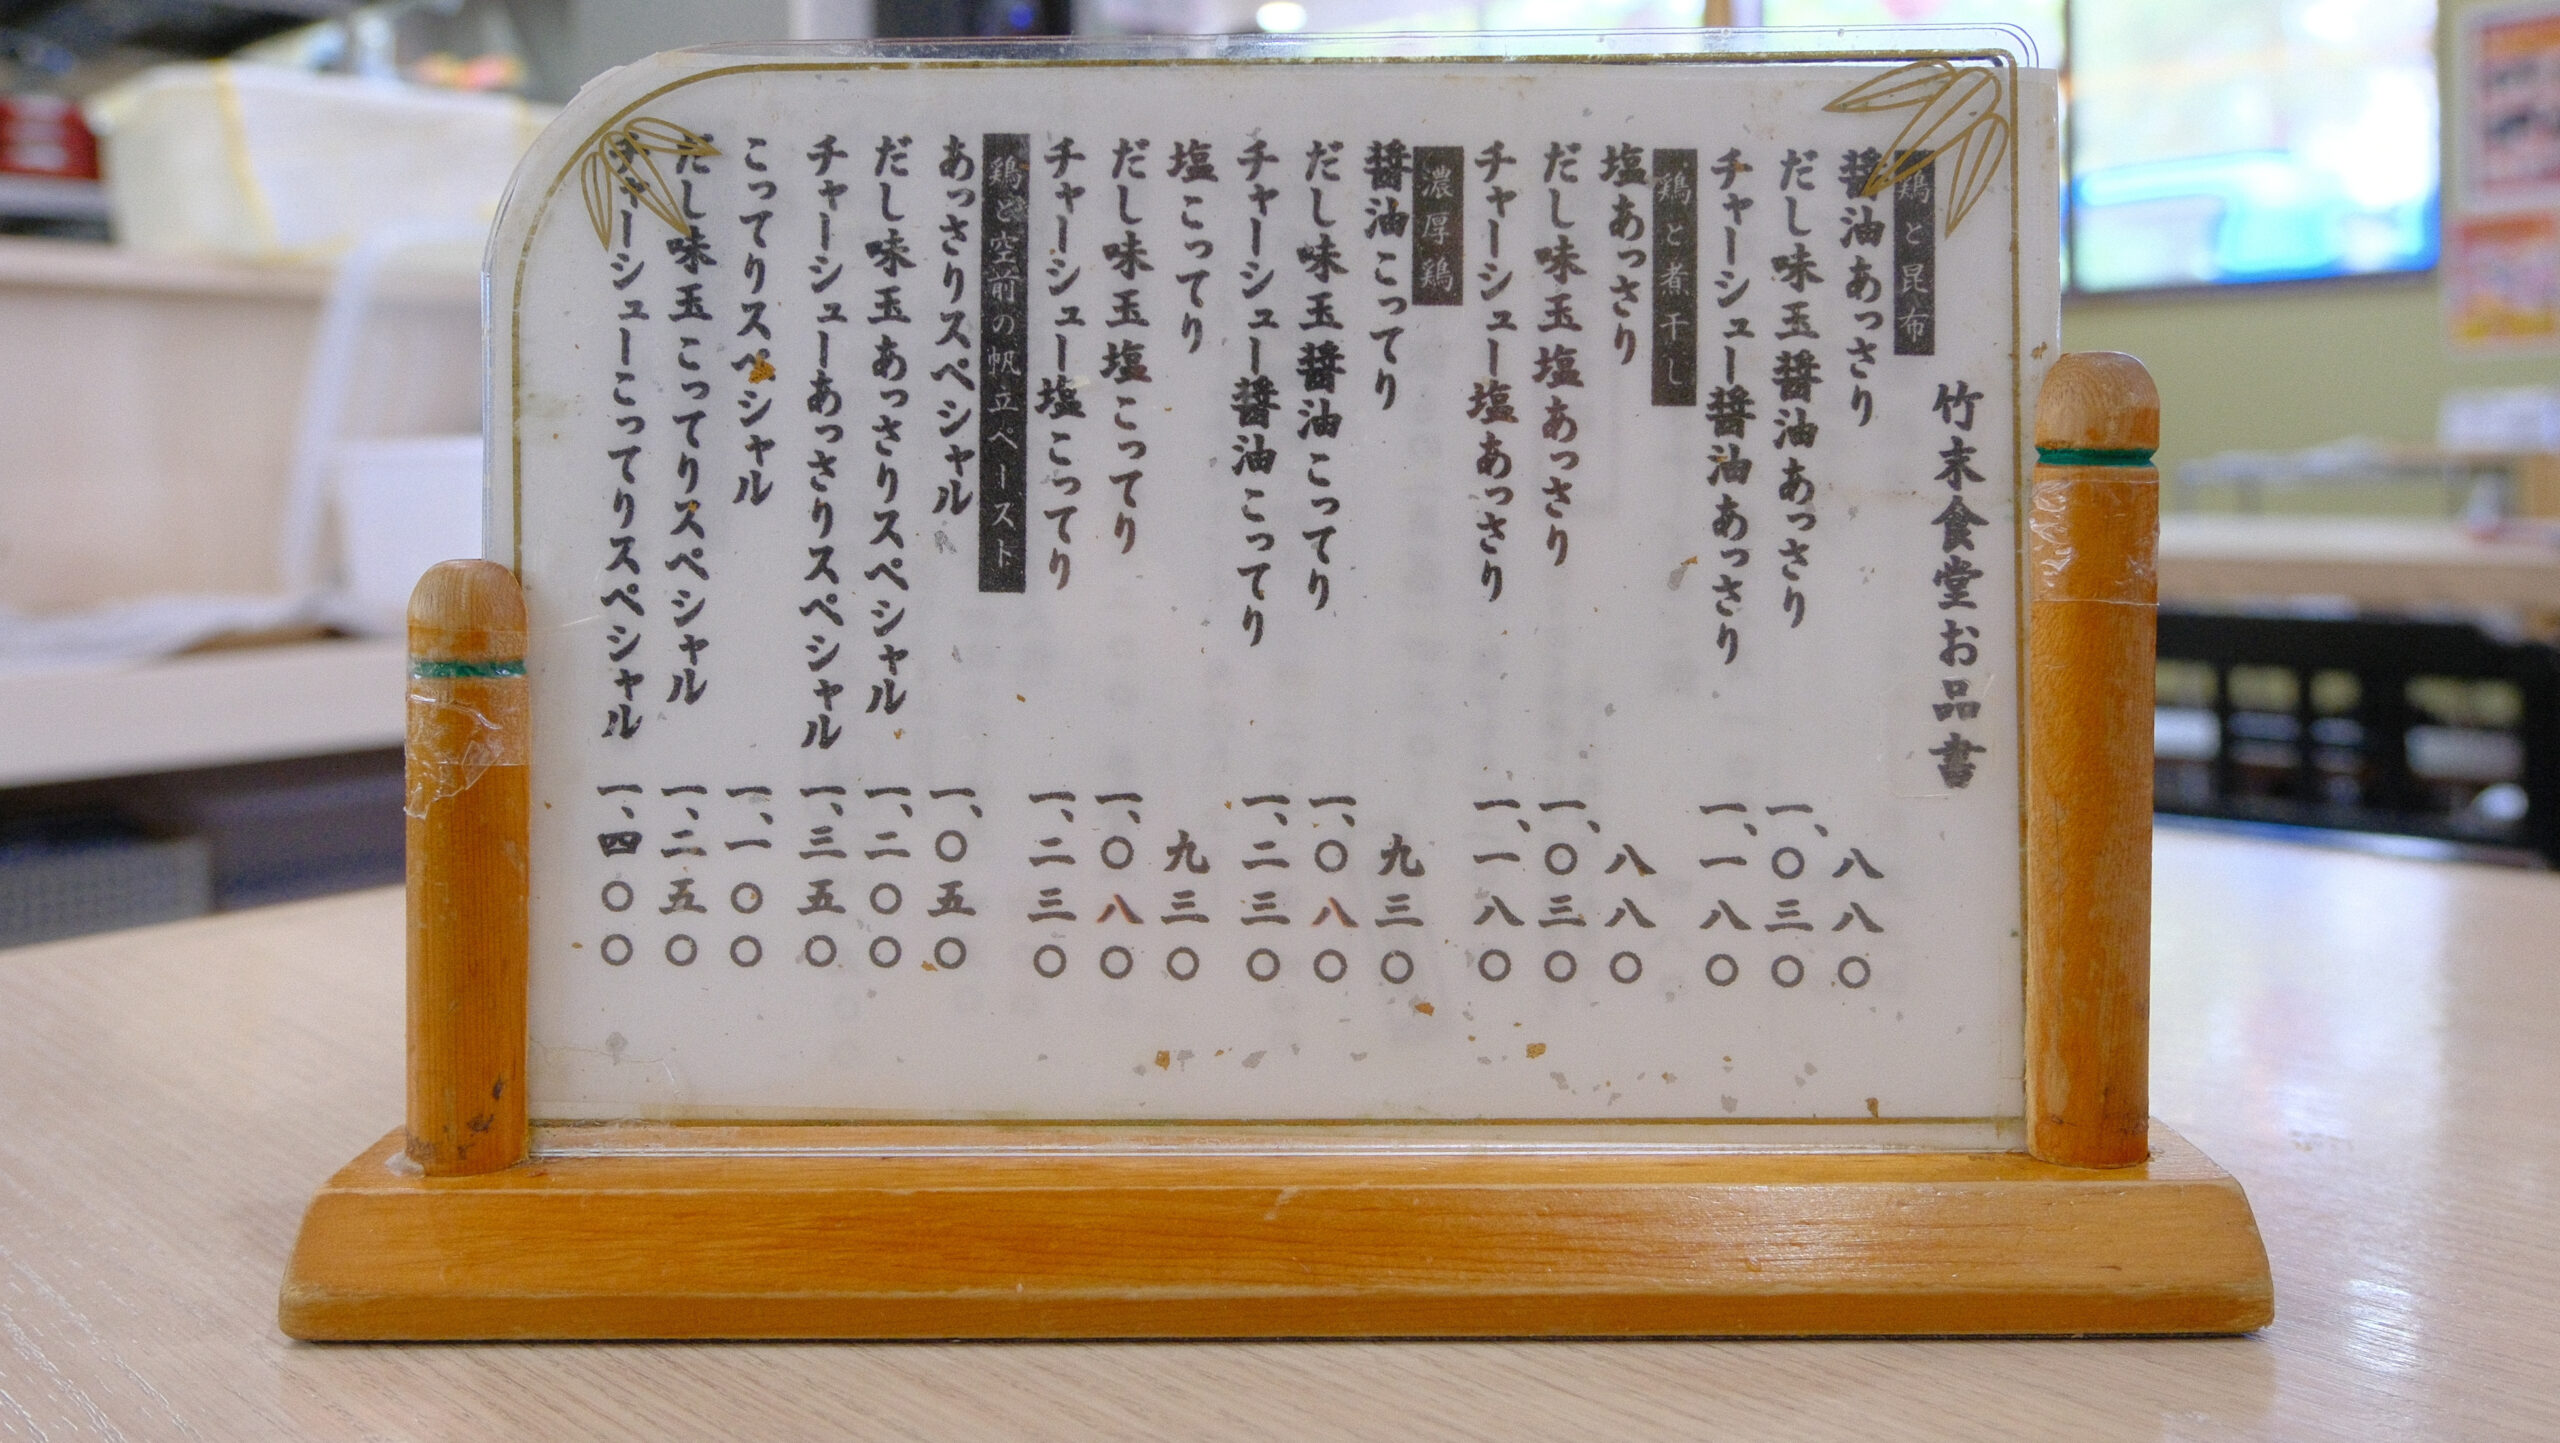 竹末食堂お品書
鶏と昆布
醤油あっさり 八八〇
だし味玉醤油あっさり 一、〇三〇
チャーシュー醤油あっさり 一、一八〇
鶏と煮干し
塩あっさり 八八〇
だし味玉塩あっさり 一、〇三〇
チャーシュー塩あっさり 一、一八〇
濃厚鶏
醤油こってり 九三〇
だし味玉醤油こってり 一、〇八〇
チャーシュー醤油こってり 一、二三〇
塩こってり 九三〇
だし味玉塩こってり 一、〇八〇
チャーシュー塩こってり 一、二三〇
鶏と空前の帆立ペースト
あっさりスペシャル 一、〇五〇
だし味玉あっさりスペシャル 一、二〇〇
チャーシューあっさりスペシャル 一、三五〇
こってりスペシャル 一、一〇〇
だし味玉こってりスペシャル 一、二五〇
チャーシューこってりスペシャル 一、四〇〇